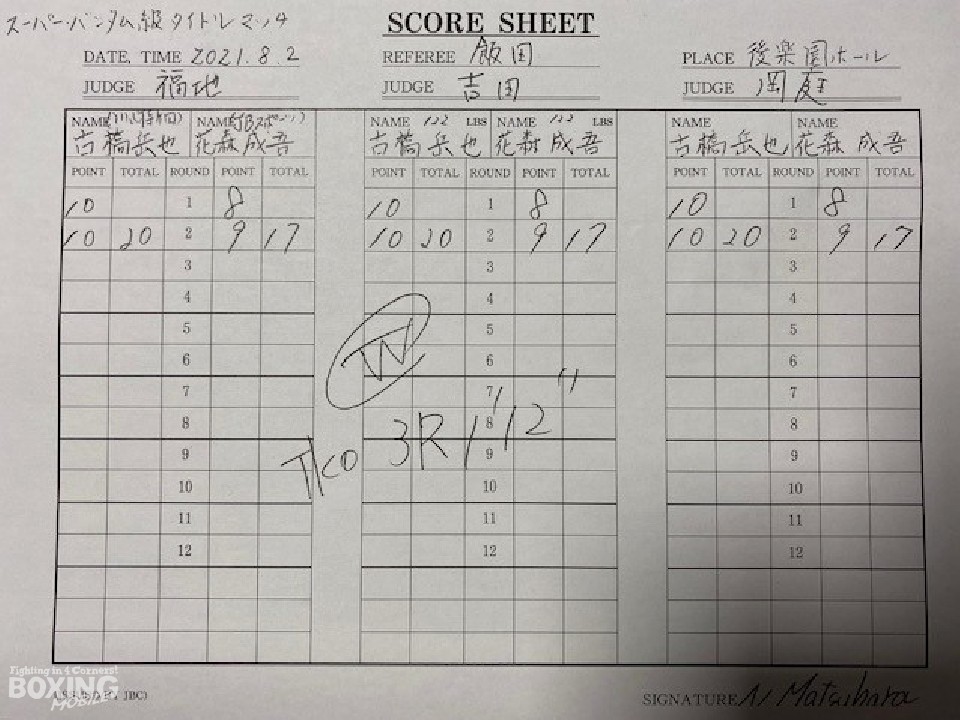 スーパーバンタム級タイトルマッチ
SCORE SHEET
DATE, TIME 2021.8.2
REFEREE 飯田
PLACE 後楽園ホール
JUDGE 福地
JUDGE 吉田
JUDGE 岡庭
NAME NAME
NAME 122 LBS NAME 122 LBS
NAME NAME
古橋岳也 花森成吾
古橋岳也 花森成吾
古橋岳也 花森成吾
POINT TOTAL ROUND POINT TOTAL
POINT TOTAL ROUND POINT TOTAL
POINT TOTAL ROUND POINT TOTAL
10 1 8
10 1 8
10 1 8
10 20 2 9 17
10 20 2 9 17
10 20 2 9 17
3 3 3
4 4 4
5 5 5
6 6 6
7 7 7
8 8 8
9 9 9
10 10 10
11 11 11
12 12 12
W
TKO 3R 1'12"
Fighting in 4 Corners!
BOXING
MOBILE
(JBC)
SIGNATURE N Matsubara